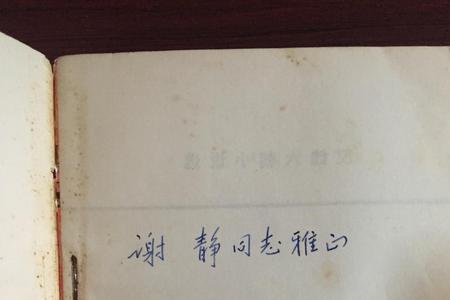 谢 静同志雅正